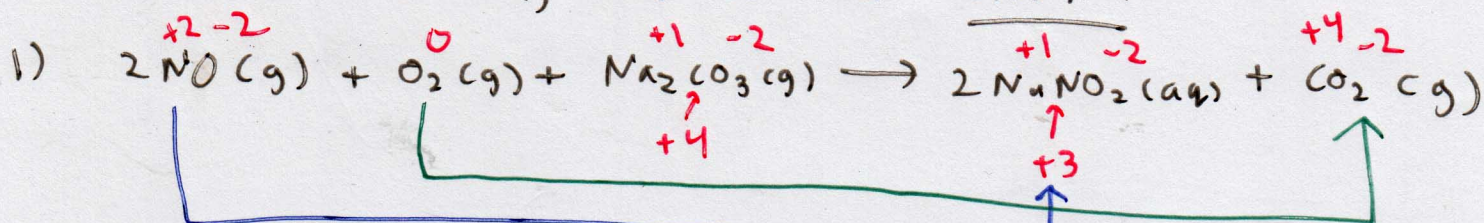 +2 -2 0 +1 -2 +1 -2 +4 -2
1) 2 NO (g) + O₂ (g) + Na₂CO₃ (g) → 2 NaNO₂ (aq) + CO₂ (g)
+4 +3